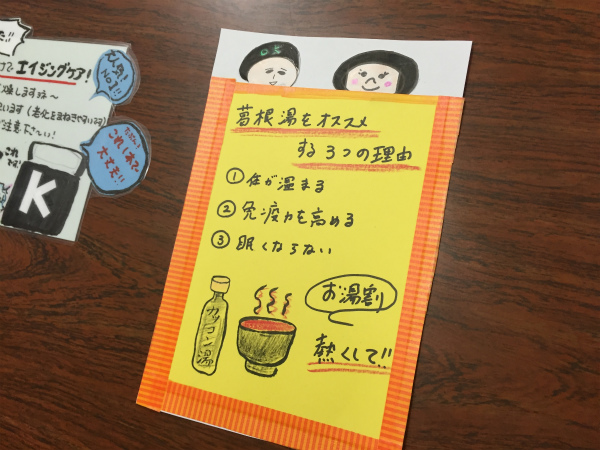 た!!
で エイジングケア!
燥しますね〜
います(老化をまねきやすいです)
ご注意下さい!
人気!
No.1!
これ1本で
大丈夫!!
K
葛根湯をオススメ
する3つの理由
① 体が温まる
② 免疫力を高める
③ 眠くならない
カッコン湯
お湯割
熱くして!!